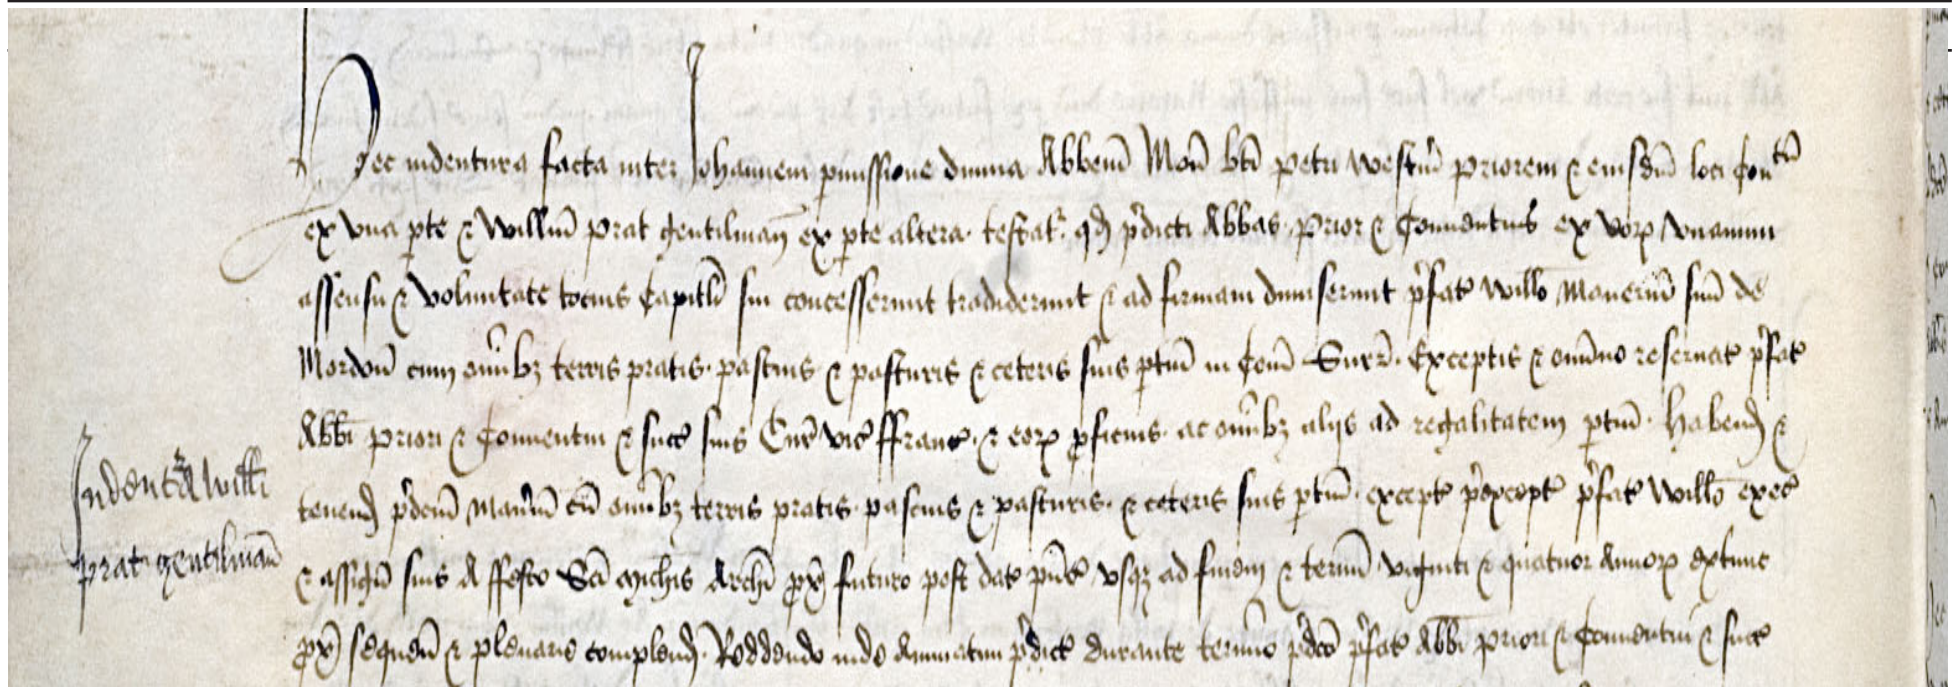 Hec indentura facta inter Johannem pmissione diuina Abbem Mon bti Petri Westm Priorem & eiusdm loci Conuentu
ex vna pte & Willm Prat gentilman ex pte altera testat qd pdicti Abbas Prior & Conuentus ex eor vnanimi
assensu & voluntate tocius Capitli sui concesserunt tradiderunt & ad firmam dimiserunt pfat Willo Maneriu suu de
Mordon cum omibz terris pratis pascuis & pasturis & ceteris suis ptin in Com Surr Exceptis & omino reseruat pfat
Abbi Priori & Conuentui & succ suis Cur vis ffranc & eor pficuis ac omibz aliis ad regalitatem ptin Habend &
Indentura Willi
tenend pdcm Maniu cu omibz terris pratis pascuis & pasturis & ceteris suis ptin except pexcept pfat Willo exec
Prat gentilman
& assign suis A ffesto Sci Michis Archi px futuro post dat psnt vsqz ad finem & terminu viginti & quatuor Annor extunc
px sequen & plenarie complend Reddendo inde Annuatim pdict durante termino pdco pfat Abbi Priori & Conuentui & succ